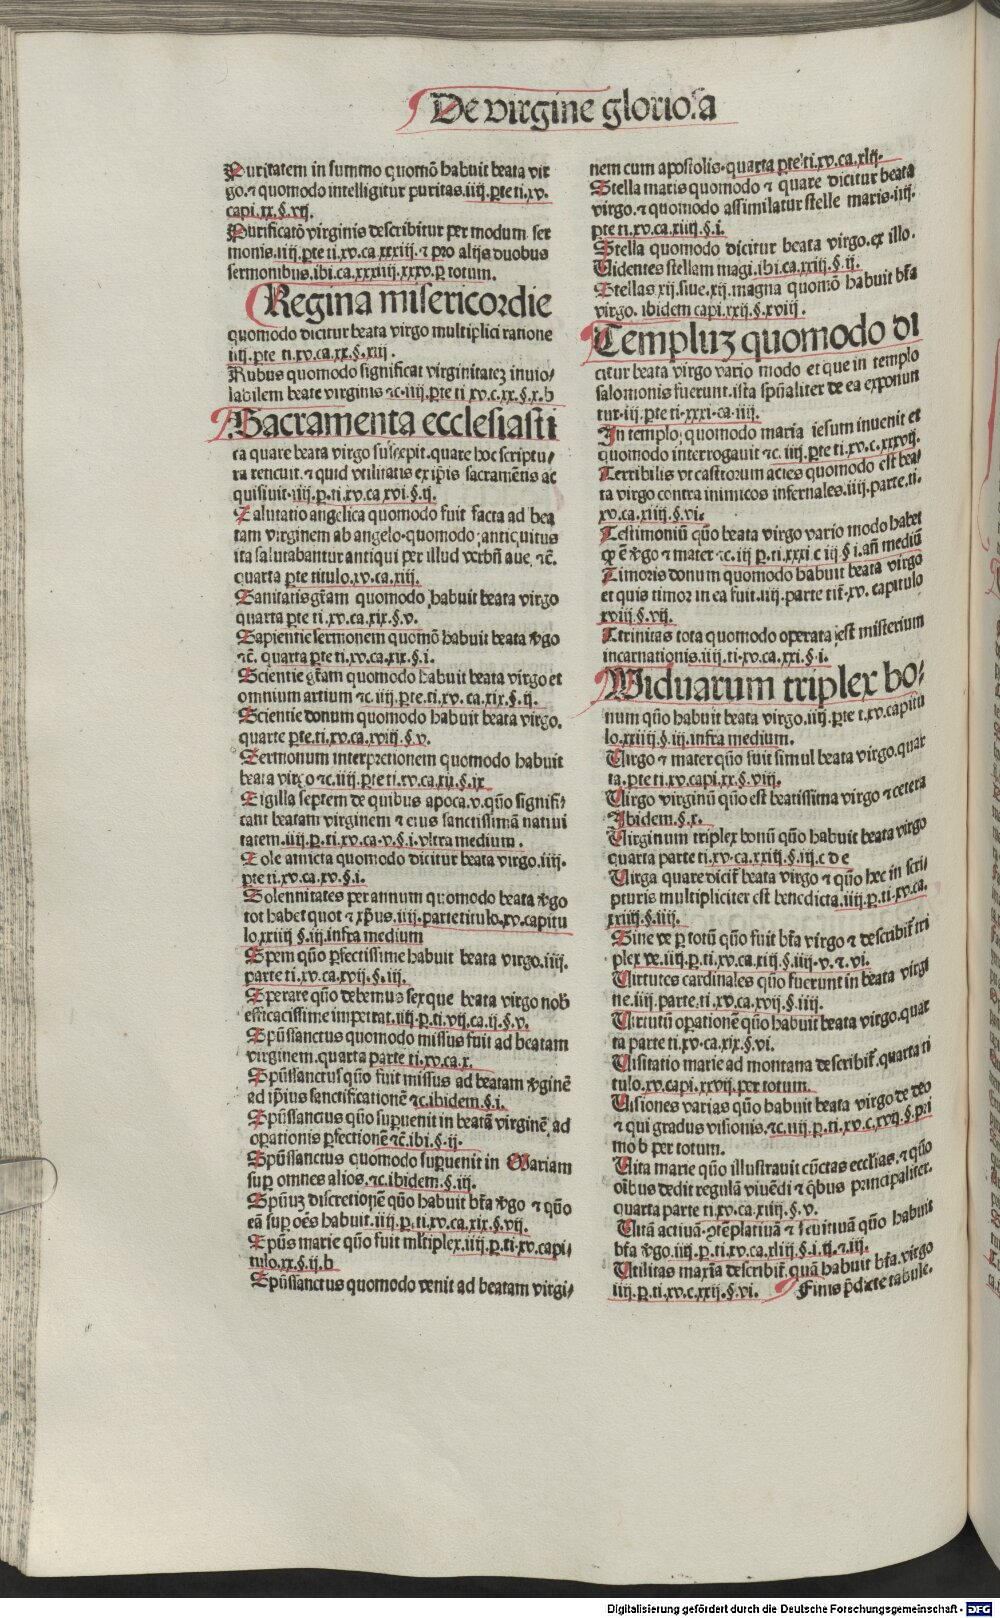 De virgine gloriosa
Puritatem in summo quomō habuit beata vir
go. ⁊ quomodo intelligitur puritas. iiij. ꝑte ti. xv.
capi. xx. §. vij.
Purificatō virginis describitur per modum ser
monis. iiij. ꝑte ti. xv. ca. xxxiij. ⁊ pro alijs duobus
sermonibus. ibi. ca. xxxiiij. xxxv. ꝑ totum.
Regina misericordie
quomodo dicitur beata virgo multiplici ratione
iiij. ꝑte ti. xv. ca. xx. §. xiij.
Rubus quomodo significat virginitatez inuio/
labilem beate virginis ⁊c. iiij. ꝑte ti xv. c. xx. §. x. b
Sacramenta ecclesiasti
ca quare beata virgo suscepit. quare hoc scriptu/
ra reticuit. ⁊ quid vtilitatis ex ip̄is sacramētis ac
quisiuit. iiij. ꝑ. ti. xv. ca xvi. §. ij.
Salutatio angelica quomodo fuit facta ad bea
tam virginem ab angelo. quomodo antiquitus
ita salutabantur antiqui per illud verbū aue, ⁊c̄.
quarta ꝑte titulo. xv. ca. xiij.
Sanitatis gr̄am quomodo habuit beata virgo
quarta ꝑte ti. xv. ca. xix. §. v.
Sapientie sermonem quomō habuit beata v̄go
⁊c̄. quarta ꝑte ti. xv. ca. xix. §. i.
Scientie gr̄am quomodo habuit beata virgo et
omnium artium ⁊c. iiij. ꝑte. ti. xv. ca. xix. §. ij.
Scientie donum quomodo habuit beata virgo.
quarte ꝑte. ti. xv. ca. xviij. §. v.
Sermonum interpretionem quomodo habuit
beata virgo ⁊c. iiij. ꝑte ti. xv. ca. xij. §. ix
Sigilla septem de quibus apoca. v. quō signifi/
cant beatam virginem ⁊ eius sanctissimā natiui
tatem. iiij. ꝑ. ti. xv. ca. v. §. i. vltra medium.
Sole amicta quomodo dicitur beata virgo. iiij.
ꝑte ti. xv. ca. xv. §. i.
Solennitates per annum quomodo beata v̄go
tot habet quot ⁊ xp̄us. iiij. parte titulo. xv. capitu
lo. xxiiij §. iij. infra medium
Spem quō ꝑfectissime habuit beata virgo. iiij.
parte ti. xv. ca. xvij. §. iij.
Sperare quō debemus sexque beata virgo nob̄
efficacissime impetrat. iiij. ꝑ. ti. vij. ca. ij. §. v.
Spūssanctus quomodo missus fuit ad beatam
virginem. quarta parte ti. xv. ca. x.
Spūssanctus quō fuit missus ad beatam v̄ginē
ad ip̄ius sanctificationē ⁊c. ibidem. §. i.
Spūssanctus quō suꝑuenit in beatā virginē. ad
oꝑationis ꝑfectionē ⁊c̄. ibi. §. ij.
Spūssanctus quomodo suꝑuenit in Mariam
suꝑ omnes alios. ⁊c. ibidem. §. iij.
Spūuz discretionē quō habuit bt̄a v̄go ⁊ quō
eā suꝑ oēs habuit. iiij. ꝑ. ti. xv. ca. xix. §. vij.
Spūs marie quō fuit ml̄tiplex. iiij. ꝑ. ti. xv. capi/
tulo. xx. §. ij. b
Spūssanctus quomodo venit ad beatam virgi/
nem cum apostolis. quarta ꝑte ti. xv. ca. xlij.
Stella maris quomodo ⁊ quare dicitur beata
virgo. ⁊ quomodo assimilatur stelle maris. iiij.
ꝑte ti. xv. ca. xiiij. §. i.
Stella quomodo dicitur beata virgo. ex illo.
Uidentes stellam magi. ibi. ca. xxiij. §. ij.
Stellas xij. siue. xij. magna quomō habuit bt̄a
virgo. ibidem capi. xxij. §. xviij.
Templuz quomodo di
citur beata virgo vario modo et que in templo
salomonis fuerunt. ista spūaliter de ea exponun
tur. iij. ꝑte ti. xxxi. ca. iiij.
In templo quomodo maria iesum inuenit et
quomodo interrogauit ⁊c. iiij. ꝑte ti. xv. c. xxxvij.
Terribilis vt castrorum acies quomodo est bea/
ta virgo contra inimicos infernales. iiij. parte. ti.
xv. ca. xiiij. §. vi.
Testimoniū quō beata virgo vario modo habet
ꝙ ē v̄go ⁊ mater ⁊c. iij ꝑ. ti. xxxi c iij §. i. an̄ mediū
Timoris donum quomodo habuit beata virgo
et quis timor in ea fuit. iiij. parte tit̄. xv. capitulo
xviij §. vij.
Trinitas tota quomodo operata est misterium
incarnationis. iiij. ti. xv. ca. xxi. §. i.
Widuarum triplex bo/
num quō habuit beata virgo. iiij. ꝑte t. xv. capitu
lo. xxiiij §. iij. infra medium.
Uirgo ⁊ mater quō fuit simul beata virgo. quar
ta. ꝑte ti. xv. capi. xx. §. viij.
Uirgo virginū quō est beatissima virgo ⁊ cetera
Ibidem. §. x.
Uirginum triplex bonū quō habuit beata virgo
quarta parte ti. xv. ca. xxiij. §. iij. c d e
Uirga quare dicit̄ beata virgo ⁊ quō hec in scri/
pturis multipliciter est benedicta. iiij. ꝑ. ti. xv. ca.
xxiiij. §. iiij.
Sine ve ꝑ totū quō fuit bt̄a virgo ⁊ describit̄ tri
plex ve. iiij. ꝑ. ti. xv. ca. xiij. §. iiij. v. ⁊. vi.
Uirtutes cardinales quō fuerunt in beata virgi
ne. iiij. parte. ti. xv. ca. xvij. §. iiij.
Uirtutū oꝑationē quō habuit beata virgo. quar
ta parte ti. xv. ca. xix. §. vi.
Uisitatio marie ad montana describit̄. quarta ti
tulo. xv. capi. xxvij. per totum.
Uisiones varias quō habuit beata virgo de deo
⁊ qui gradus visionis. ⁊c. iiij. ꝑ. ti. xv. c. xvij. §. pri
mo b per totum.
Uita marie quō illustrauit cūctas eccl̄ias. ⁊ quō
oībus dedit regulā viuēdi ⁊ qbus principaliter.
quarta parte ti. xv. ca. xiiij. §. v.
Uitā actiuā. ꝯtēplatiuā ⁊ fruitiuā quō habuit
bt̄a v̄go. iiij. ꝑ. ti. xv. ca. xliij §. i. ij. ⁊. iij.
Utilitas maxīa describit̄. quā habuit bt̄a. virgo
iiij. ꝑ. ti. xv. c. xxij. §. vi. Finis p̄dicte tabule.
Digitalisierung gefördert durch die Deutsche Forschungsgemeinschaft - DFG